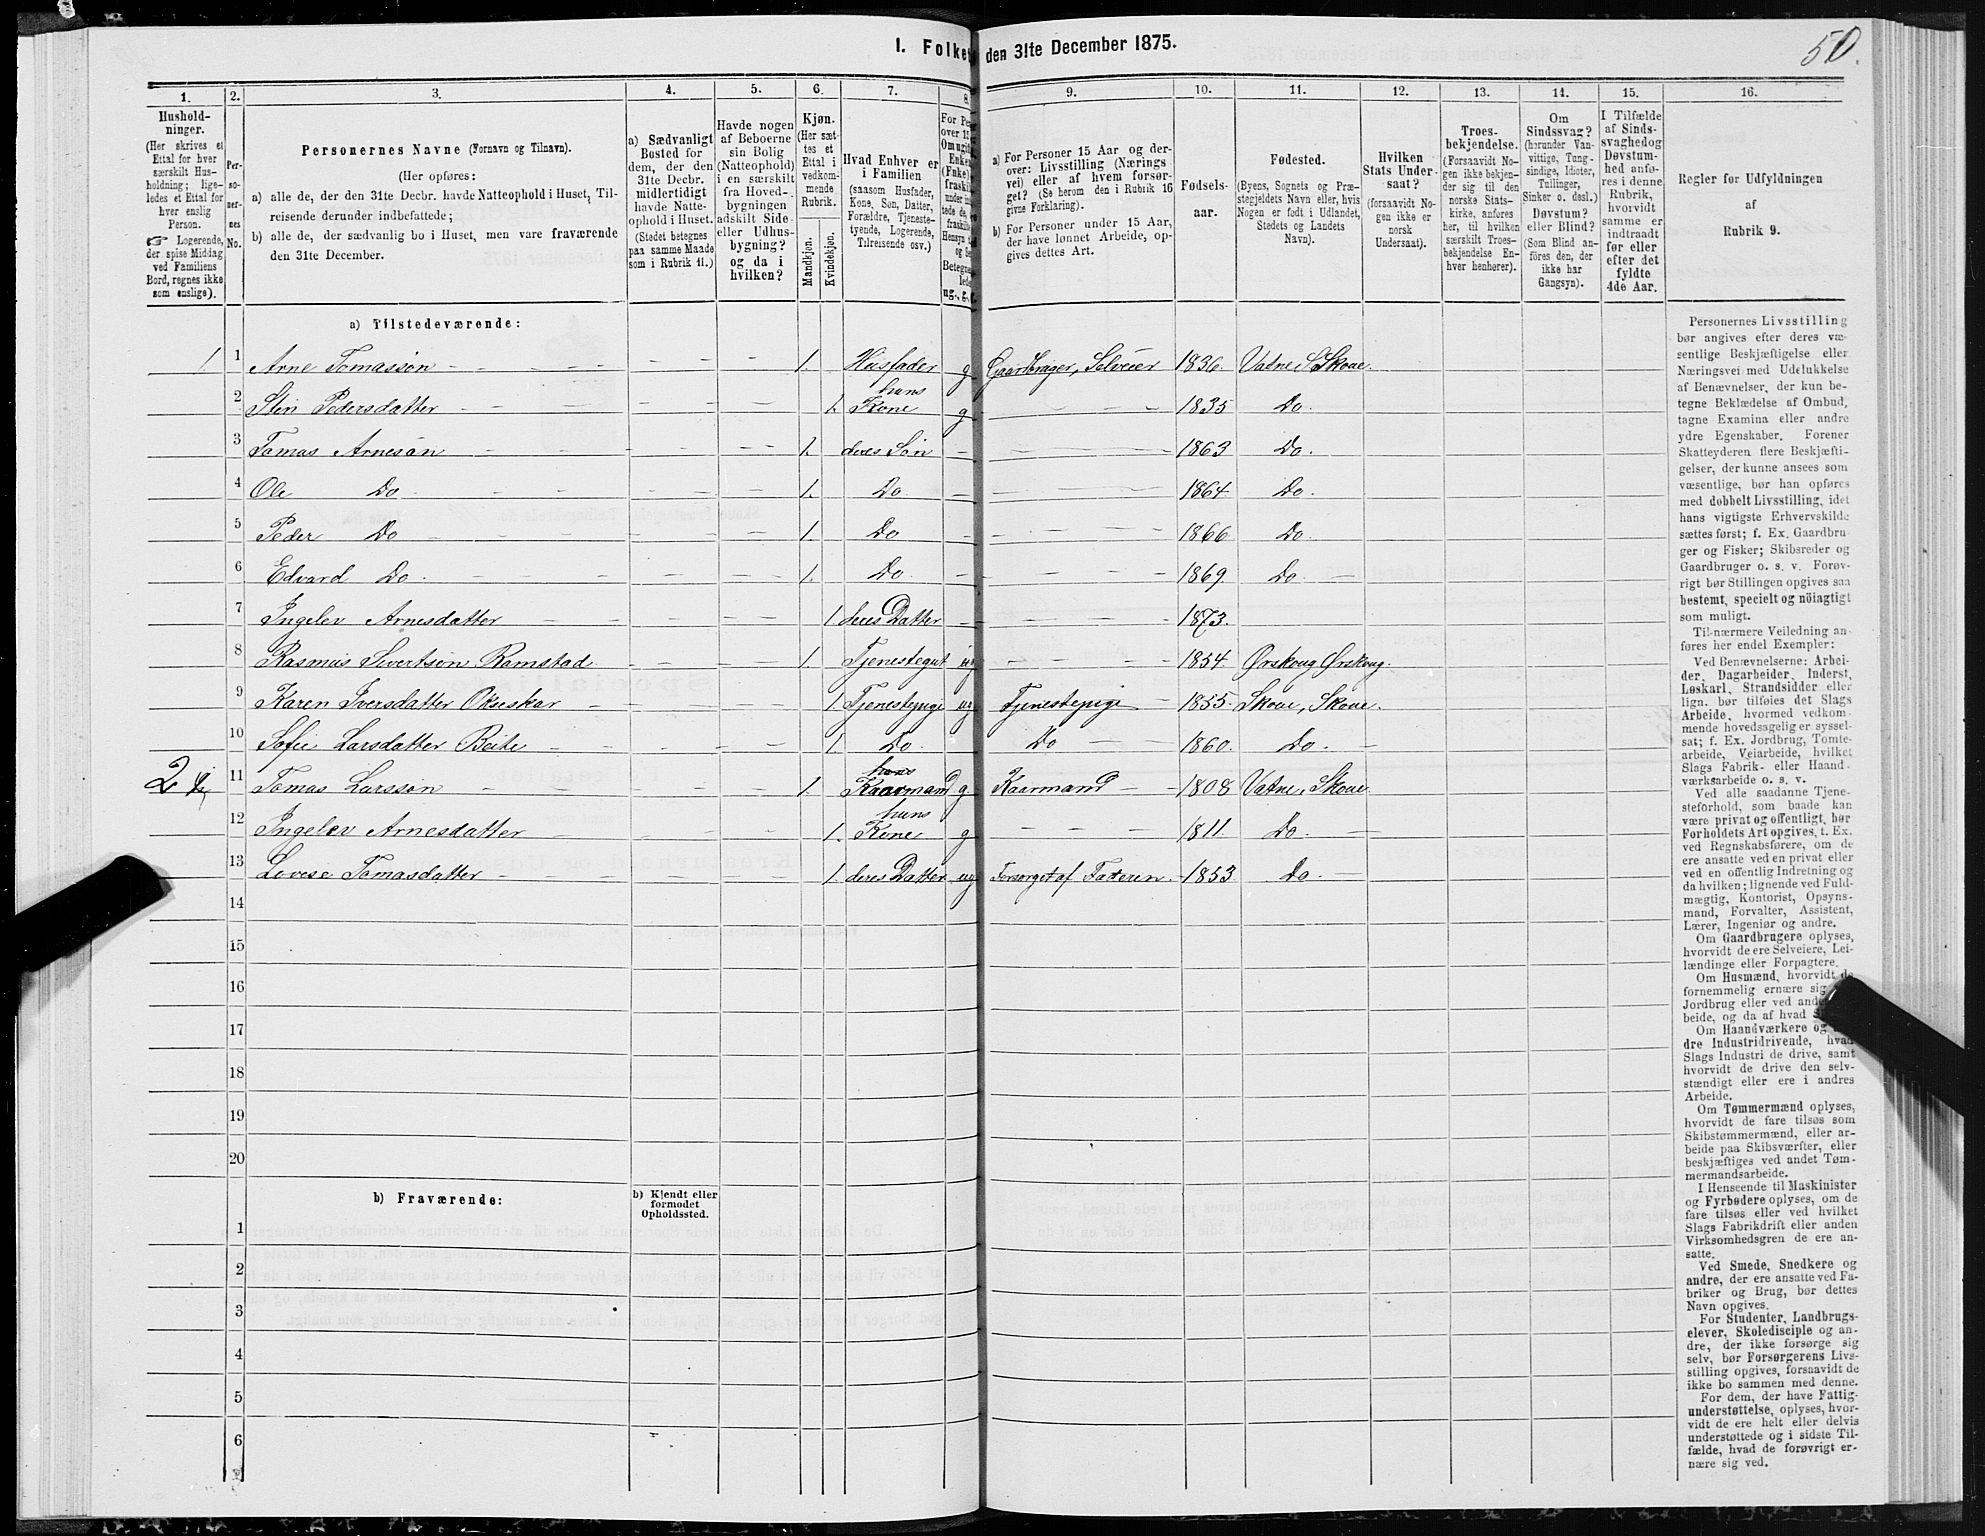 50.
I. Folket den 31te December 1875.
1. 2. 3. 4. 5. 6. 7. 8. 9. 10. 11. 12. 13. 14. 15. 16.
Hushold-
ninger.
(Her skrives et
Ettal for hver
særskilt Hus-
holdning; lige-
ledes et Ettal for
hver enslig
Person.
☞ Logerende,
der spise Middag
ved Familiens
Bord, regnes ikke
som enslige).
Per-
so-
ner-
nes
No.
Personernes Navne (Fornavn og Tilnavn).
(Her opføres:
a) alle de, der den 31te Decbr. havde Natteophold i Huset, Til-
reisende derunder indbefattede;
b) alle de, der sædvanlig bo i Huset, men vare fraværende
den 31te December.
a) Sædvanligt
Bosted for
dem, der den
31te Decbr.
midlertidigt
havde Natte-
ophold i Huset.
(Stedet betegnes
paa samme Maade
som i Rubrik 11.)
Havde nogen
af Beboerne
sin Bolig
(Natteophold)
i en særskilt
fra Hoved-
bygningen
adskilt Side-
eller Udhus-
bygning?
og da i
hvilken?
Kjøn.
(Her sæt-
tes et
Ettal i
vedkom-
mende
Rubrik.
Mandkjøn.
Kvindekjøn.
Hvad Enhver er
i Familien
(saasom Husfader,
Kone, Søn, Datter,
Forældre, Tjeneste-
tyende, Logerende,
Tilreisende osv.)
ug., g.,
a) For Personer 15 Aar og der-
over: Livsstilling (Nærings
vei) eller af hvem forsør-
get? (Se herom den i Rubrik 16
givne Forklaring).
b) For Personer under 15 Aar,
der have lønnet Arbeide, op-
gives dettes Art.
Fødsels-
aar.
Fødested.
(Byens, Sognets og Præ-
stegjeldets Navn eller, hvis
Nogen er født i Udlandet,
Stedets og Landets
Navn).
Hvilken
Stats Under-
saat?
(forsaavidt No-
gen ikke er
norsk
Undersaat).
Troes-
bekjendelse.
(Forsaavidt No-
gen ikke bekjen-
der sig til den
norske Stats-
kirke, anføres
her, til hvilken
særskilt Troes-
bekjendelse En-
hver henhører).
Om
Sindssvag?
(herunder Van-
vittige, Tung-
sindige, Idioter,
Tullinger,
Sinker o. desl.)
Døvstum?
eller Blind?
(Som Blind an-
føres den, der
ikke har
Gangsyn).
I Tilfælde
af Sinds-
svaghed og
Døvstum-
hed anfø-
res i denne
Rubrik,
hvorvidt
samme er
indtraadt
før eller
efter det
fyldte
4de Aar.
Regler for Udfyldningen
af
Rubrik 9.
a) Tilstedeværende:
1. 1 Arne Tomassøn 1. Husfader g Gaardbruger, Selveier 1836. Vatne, Skoue.
2 Stin Pedersdatter 1. hans Kone g 1835 Do.
3 Tomas Arnesøn 1. deres Søn 1863 Do.
4 Ole Do 1. Do. 1864. Do.
5 Peder Do 1. Do 1866 Do.
6 Edvard Do. 1. Do. 1869. Do.
7 Ingelev Arnesdatter 1 deres Datter 1873.
8 Rasmus Sivertsøn Ramstad 1. Tjenestegut ug 1854. Ørskoug Ørskoug.
9 Karen Iversdatter Okseskar 1. Tjenestepige ug Tjenestepige 1855. Skoue, Skoue.
10 Sofie Larsdatter Beite 1. Do Do 1860. Do.
2 11 Tomas Larssøn 1. hans Kaarmand g Kaarmand 1808 Vatne, Skoue
12 Ingelev Arnesdatter 1. hans Kone g 1811. Do.
13 Lovise Tomasdatter 1. deres Datter ug Forsørget af Faderen. 1853. Do.
14
15
16
17
18
19
20
b) Fraværende:
b) Kjendt eller
formodet
Opholdssted.
1
2
3
4
5
6
Personernes Livsstilling
bør angives efter deres væ-
sentlige Beskjæftigelse eller
Næringsvei med Udelukkelse
af Benævnelser, der kun be-
tegne Beklædelse af Ombud,
tagne Examina eller andre
ydre Egenskaber. Forener
Skatteyderen flere Beskjæfti-
gelser, der kunne ansees som
væsentlige, bør han opføres
med dobbelt Livsstilling, idet
hans vigtigste Erhvervskilde
sættes først; f. Ex. Gaardbru-
ger og Fisker; Skibsreder og
Gaardbruger o. s. v. Forøv-
rigt bør Stillingen opgives saa
bestemt, specielt og nöiagtigt
som muligt.
Til nærmere Veiledning an-
føres her endel Exempler:
Ved Benævnelserne: Arbei-
der, Dagarbeider, Inderst,
Løskarl, Strandsidder eller
lign. bør tilføies det Slags
Arbeide, hvormed vedkom-
mende hovedsagelig er syssel-
sat; f. Ex. Jordbrug, Tomte-
arbeide, Veiarbeide, hvilket
Slags Fabrik- eller Haand-
værksarbeide o. s. v.
Ved alle saadanne Tjene-
steforhold, som baade kan
være privat og offentligt, bør
Forholdets Art opgives, t. Ex.
ved Regnskabsførere, om de
ere ansatte ved en privat eller
ved en offentlig Indretning og
da hvilken; lignende ved Fuld-
mægtig, Kontorist, Opsyns-
mand, Forvalter, Assistent,
Lærer, Ingeniør og andre.
Om Gaardbrugere oplyses,
hvorvidt de ere Selveiere, Lei-
lændinge eller Forpagtere.
Om Husmænd, hvorvidt de
fornemmelig ernære sig
Jordbrug eller ved
beide, og da af hvad
Om Haandværkere og
dre Industridrivende, hvad
Slags Industri de drive, samt
hvorvidt de drive den selv-
stændigt eller ere i andres
Arbeide.
Om Tømmermænd oplyses,
hvorvidt de fare tilsøs som
Skibstømmermænd, eller ar-
beide paa Skibsværfter, eller
beskjæftiges ved andet Tøm-
mermandsarbeide.
I Henseende til Maskinister
og Fyrbødere oplyses, om de
fare tilsøs eller ved hvilket
Slags Fabrikdrift eller anden
Virksomhedsgren de ere an-
satte.
Ved Smede, Snedkere og
andre, der ere ansatte ved Fa-
briker og Brug, bør dettes
Navn opgives.
For Studenter, Landbrugs-
elever, Skoledisciple og an-
dre, der ikke forsørge sig
selv, bør Forsørgerens Livs-
stilling opgives, forsaavidt de
ikke bo sammen med denne.
For dem, der have Fattig-
understøttelse, oplyses, hvor-
vidt de ere helt eller delvis
understøttede og i sidste Til-
fælde, hvad de forøvrigt er-
nære sig ved.